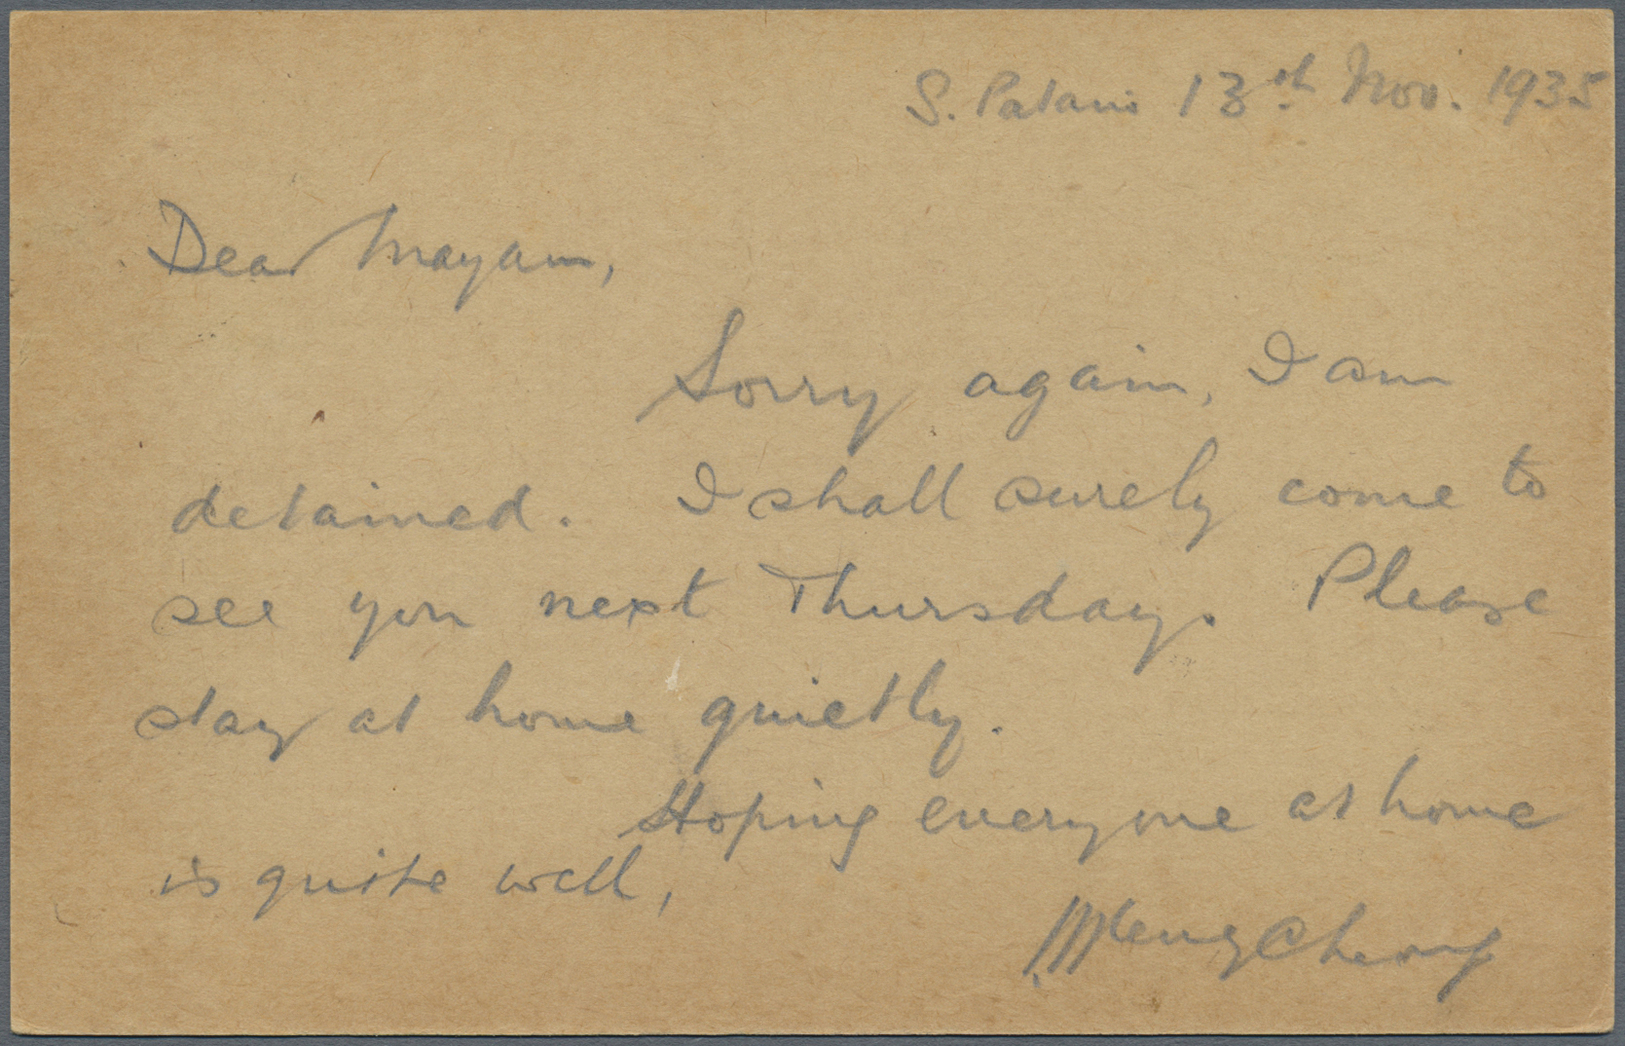 S. Patani 13th Nov. 1935
Dear Mayam,
Sorry again, I am
detained. I shall surely come to
see you next Thursday. Please
stay at home quietly.
Hoping everyone at home
is quite well,
MengCheong